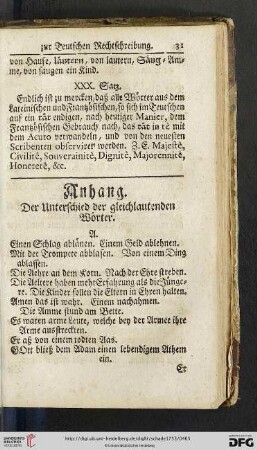 zur Teutschen Rechtschreibung. 31
von Hause, läutern, von lautern, Säug-Am-
me, von saugen ein Kind.
XXX. Satz.
Endlich ist zu mercken, daß alle Wörter aus dem
Lateinischen und Frantzösischen, so sich im Teutschen
auf ein tät endigen, nach heutiger Manier, dem
Frantzösischen Gebrauch nach, das tät in té mit
dem Acuto verwandeln, und von den neuesten
Scribenten observiret werden. Z. E. Majesté,
Civilité, Souverainité, Dignité, Majorennité,
Honeteté, &c.
Anhang.
Der Unterschied der gleichlautenden
Wörter.
A.
Einen Schlag ablänen. Einem Geld ablehnen.
Mit der Trompete abblasen. Von einem Ding
ablassen.
Die Aehre an dem Korn. Nach der Ehre streben.
Die Aeltere haben mehr Erfahrung als die Jünge-
re. Die Kinder sollen die Eltern in Ehren halten.
Amen das ist wahr. Einem nachahmen.
Die Amme stund am Bette.
Es waren arme Leute, welche bey der Armee ihre
Arme ausstreckten.
Er aß von einem todten Aas.
GOtt bließ dem Adam einen lebendigem Athem
ein.
Er
UNIVERSITÄTS-BIBLIOTHEK HEIDELBERG
DFG